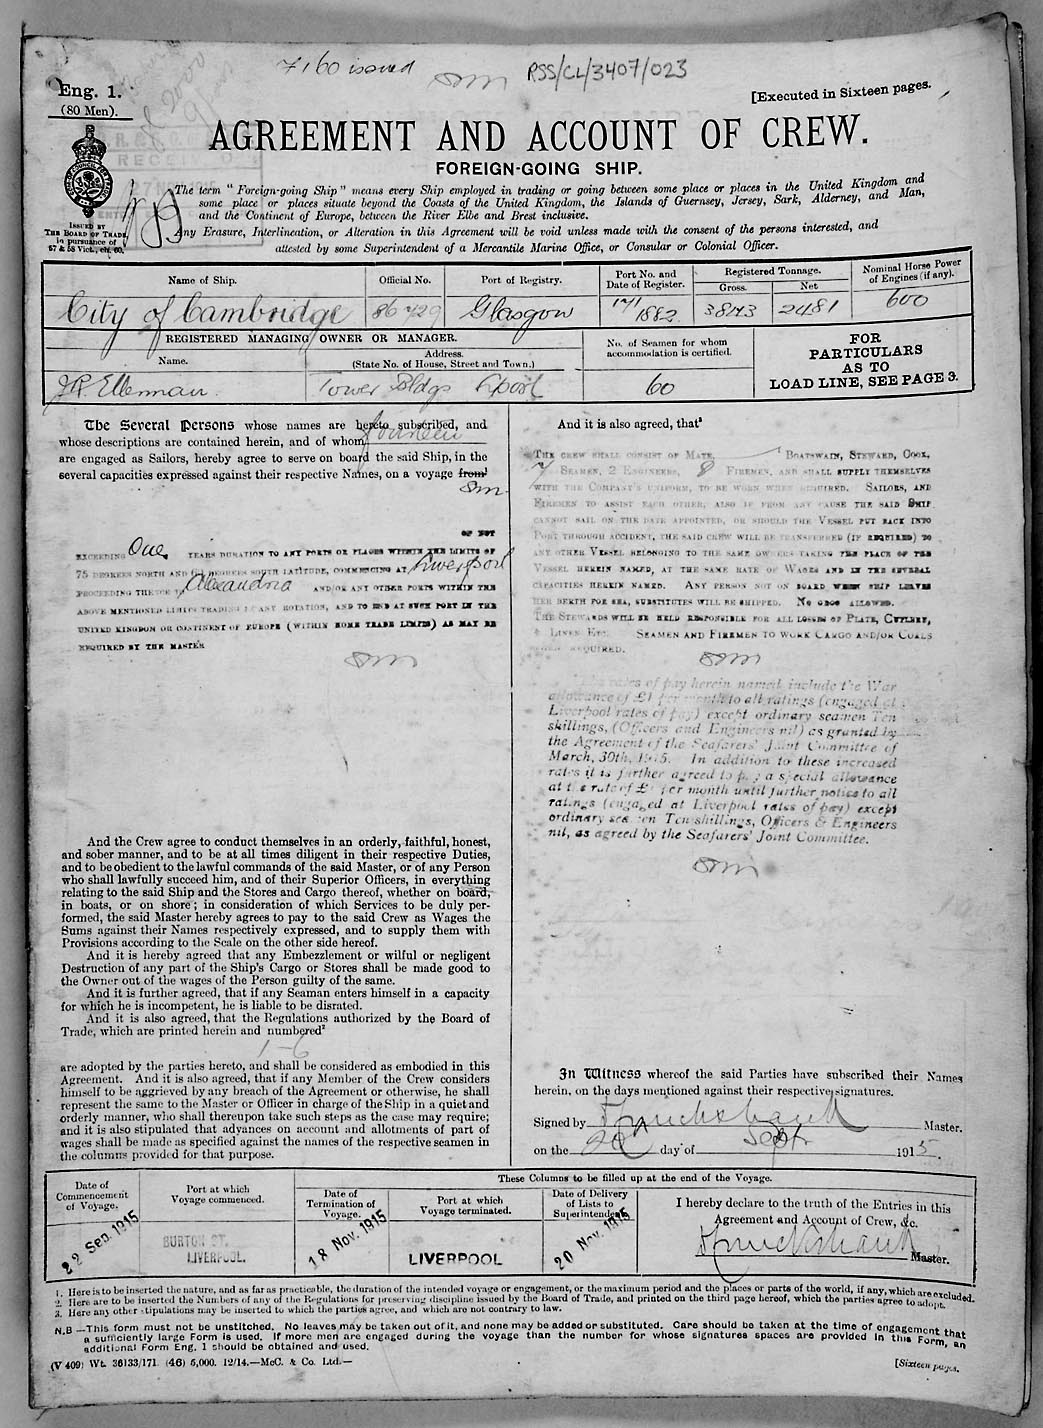 7160 issued
RSS/CL/3407/023
Eng. 1.
(80 Men).
[Executed in Sixteen pages.
AGREEMENT AND ACCOUNT OF CREW.
FOREIGN-GOING SHIP.
ISSUED BY
THE BOARD OF TRADE
in pursuance of
57 & 58 Vict., ch. 60.
The term "Foreign-going Ship" means every Ship employed in trading or going between some place or places in the United Kingdom and
some place or places situate beyond the Coasts of the United Kingdom, the Islands of Guernsey, Jersey, Sark, Alderney, and Man,
and the Continent of Europe, between the River Elbe and Brest inclusive.
Any Erasure, Interlineation, or Alteration in this Agreement will be void unless made with the consent of the persons interested, and
attested by some Superintendent of a Mercantile Marine Office, or Consular or Colonial Officer.
Name of Ship. Official No. Port of Registry. Port No. and Date of Register. Registered Tonnage. Gross. Net Nominal Horse Power of Engines (if any).
City of Cambridge 86729 Glasgow 1882 2481 600
REGISTERED MANAGING OWNER OR MANAGER.
Name. Address. (State No. of House, Street and Town.) No. of Seamen for whom accommodation is certified.
J.R. Ellerman Tower Bldgs Lpool 60
FOR
PARTICULARS
AS TO
LOAD LINE, SEE PAGE 3.
The Several Persons whose names are hereto subscribed, and
whose descriptions are contained herein, and of whom fourteen
are engaged as Sailors, hereby agree to serve on board the said Ship, in the
several capacities expressed against their respective Names, on a voyage from¹
OF NOT
EXCEEDING One YEARS DURATION TO ANY PORTS OR PLACES WITHIN THE LIMITS OF
75 DEGREES NORTH AND DEGREES SOUTH LATITUDE, COMMENCING AT Liverpool
PROCEEDING THENCE TO Alexandria AND/OR ANY OTHER PORTS WITHIN THE
ABOVE MENTIONED LIMITS TRADING IN ANY ROTATION, AND TO END AT SUCH PORT IN THE
UNITED KINGDOM OR CONTINENT OF EUROPE (WITHIN HOME TRADE LIMITS) AS MAY BE
REQUIRED BY THE MASTER
And the Crew agree to conduct themselves in an orderly, faithful, honest,
and sober manner, and to be at all times diligent in their respective Duties,
and to be obedient to the lawful commands of the said Master, or of any Person
who shall lawfully succeed him, and of their Superior Officers, in everything
relating to the said Ship and the Stores and Cargo thereof, whether on board,
in boats, or on shore; in consideration of which Services to be duly per-
formed, the said Master hereby agrees to pay to the said Crew as Wages the
Sums against their Names respectively expressed, and to supply them with
Provisions according to the Scale on the other side hereof.
And it is hereby agreed that any Embezzlement or wilful or negligent
Destruction of any part of the Ship's Cargo or Stores shall be made good to
the Owner out of the wages of the Person guilty of the same.
And it is further agreed, that if any Seaman enters himself in a capacity
for which he is incompetent, he is liable to be disrated.
And it is also agreed, that the Regulations authorized by the Board of
Trade, which are printed herein and numbered²
1-6
are adopted by the parties hereto, and shall be considered as embodied in this
Agreement. And it is also agreed, that if any Member of the Crew considers
himself to be aggrieved by any breach of the Agreement or otherwise, he shall
represent the same to the Master or Officer in charge of the Ship in a quiet and
orderly manner, who shall thereupon take such steps as the case may require;
and it is also stipulated that advances on account and allotments of part of
wages shall be made as specified against the names of the respective seamen in
the columns provided for that purpose.
And it is also agreed, that³
THE CREW SHALL CONSIST OF MATE, BOATSWAIN, STEWARD, COOK,
7 SEAMEN, 2 ENGINEERS, 8 FIREMEN, AND SHALL SUPPLY THEMSELVES
WITH THE COMPANY'S UNIFORM, TO BE WORN WHEN REQUIRED. SAILORS, AND
FIREMEN TO ASSIST EACH OTHER, ALSO IF FROM ANY CAUSE THE SAID SHIP
CANNOT SAIL ON THE DATE APPOINTED, OR SHOULD THE VESSEL PUT BACK INTO
PORT THROUGH ACCIDENT, THE SAID CREW WILL BE TRANSFERRED (IF REQUIRED) TO
ANY OTHER VESSEL BELONGING TO THE SAME OWNERS TAKING THE PLACE OF THE
VESSEL HEREIN NAMED, AT THE SAME RATE OF WAGES AND IN THE SEVERAL
CAPACITIES HEREIN NAMED. ANY PERSON NOT ON BOARD WHEN SHIP LEAVES
HER BERTH FOR SEA, SUBSTITUTES WILL BE SHIPPED. NO GROG ALLOWED.
THE STEWARDS WILL BE HELD RESPONSIBLE FOR ALL LOSSES OF PLATE, CUTLERY,
& LINEN ETC. SEAMEN AND FIREMEN TO WORK CARGO AND/OR COALS
WHEN REQUIRED.
The rates of pay herein named include the War
allowance of £1 per month to all ratings (engaged at
Liverpool rates of pay) except ordinary seamen Ten
shillings, (Officers and Engineers nil) as granted by
the Agreement of the Seafarers' Joint Committee of
March, 30th, 1915. In addition to these increased
rates it is further agreed to pay a special allowance
at the rate of £ per month until further notice to all
ratings (engaged at Liverpool rates of pay) except
ordinary seamen Ten shillings, Officers & Engineers
nil, as agreed by the Seafarers' Joint Committee.
In Witness whereof the said Parties have subscribed their Names
herein, on the days mentioned against their respective signatures.
Signed by Master.
on the day of Septr 1915.
These Columns to be filled up at the end of the Voyage.
Date of Commencement of Voyage. Port at which Voyage commenced. Date of Termination of Voyage. Port at which Voyage terminated. Date of Delivery of Lists to Superintendent. I hereby declare to the truth of the Entries in this Agreement and Account of Crew, &c.
22 Sep. 1915 BURTON ST. LIVERPOOL. 18 Nov. 1915 LIVERPOOL 20 Nov. 1915 Master.
1. Here is to be inserted the nature, and as far as practicable, the duration of the intended voyage or engagement, or the maximum period and the places or parts of the world, if any, which are excluded.
2. Here are to be inserted the Numbers of any of the Regulations for preserving discipline issued by the Board of Trade, and printed on the third page hereof, which the parties agree to adopt.
3. Here any other stipulations may be inserted to which the parties agree, and which are not contrary to law.
N.B —This form must not be unstitched. No leaves may be taken out of it, and none may be added or substituted. Care should be taken at the time of engagement that
a sufficiently large Form is used. If more men are engaged during the voyage than the number for whose signatures spaces are provided in this Form, an
additional Form Eng. 1 should be obtained and used.
(V 409) Wt. 36133/171. (46) 5,000. 12/14.—McC. & Co. Ltd.—
[Sixteen pages.